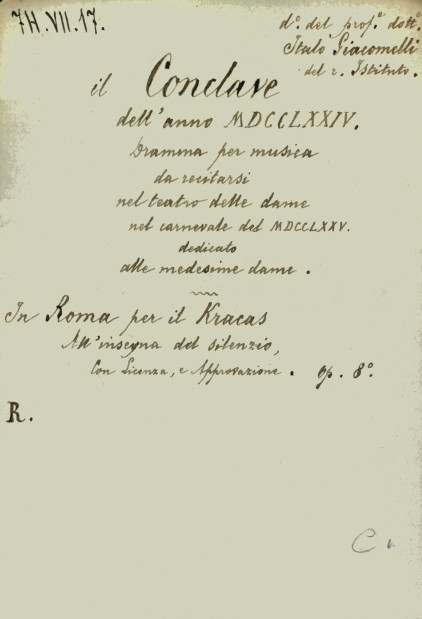 7H.VII.17.
d.° del prof.e dott.e
Italo Giacomelli
del r. Istituto.
il Conclave
dell'anno MDCCLXXIV.
Dramma per musica
da recitarsi
nel teatro delle dame
nel carnevale del MDCCLXXV.
dedicato
alle medesime dame.
In Roma per il Kracas
All'insegna del silenzio,
Con Licenza, e Approvazione. op. 8°.
R.
C